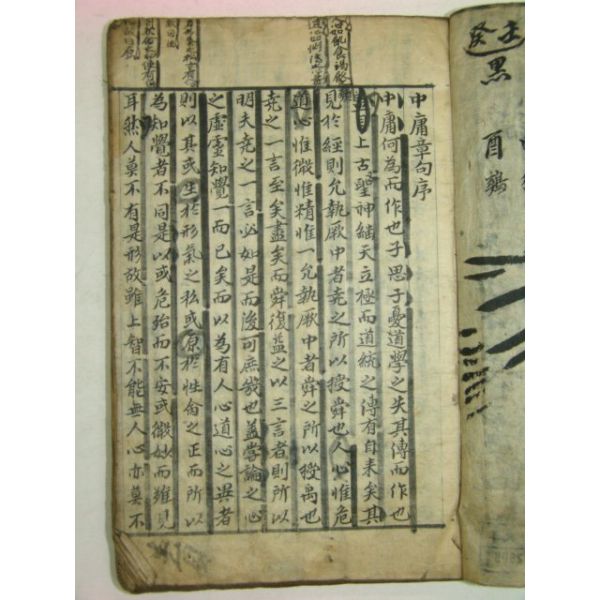 中庸章句序
中庸何為而作也子思子憂道學之失其傳而作也
盖自上古聖神繼天立極而道統之傳有自来矣其
見於經則允執厥中者堯之所以授舜也人心惟危
道心惟微惟精惟一允執厥中者舜之所以授禹也
堯之一言至矣盡矣而舜復益之以三言者則所以
明夫堯之一言必如是而後可庶幾也盖嘗論之心
之虛靈知覺一而已矣而以為有人心道心之異者
則以其或生於形氣之私或原於性命之正而所以
為知覺者不同是以或危殆而不安或微妙而難見
耳然人莫不有是形故雖上智不能無人心亦莫不
黑
酉鷄